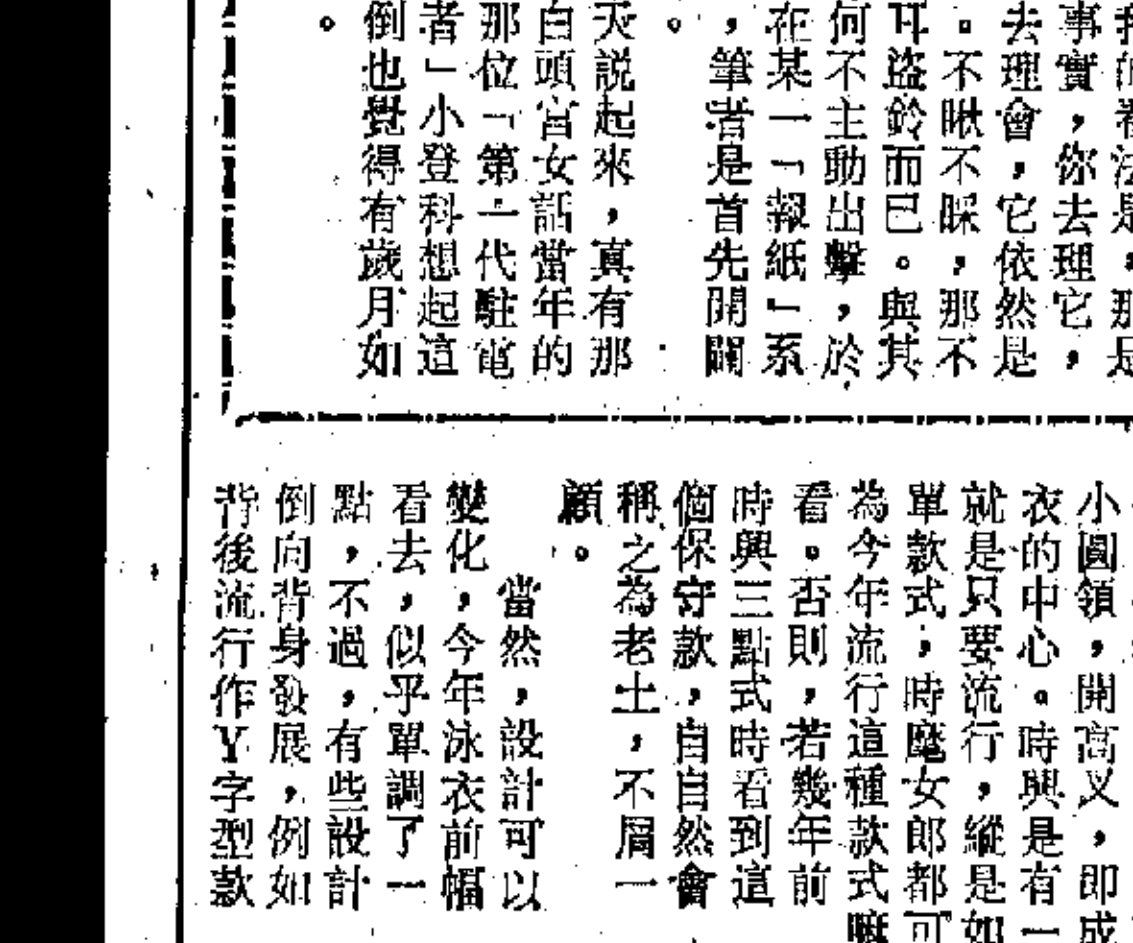 的看法是，那是
事實，你去理它，
去理會，它依然是
。不瞅不睬，那不
耳盜鈴而已。與其
何不主動出擊，於
在某一「報紙」系
，筆者是首先開闢
。
天説起來，真有那
白頭宮女話當年的
那位「第一代駐電
者」小登科想起這
倒也覺得有歲月如
。
小圓領，開高叉，即成
衣的中心。時興是有一
就是只要流行，縱是如
單款式，時麾女郎都可
為今年流行這種款式嘛
看。否則，若幾年前
時興三點式時看到這
個保守款，自自然會
稱之為老土，不屑一
顧。
當然，設計可以
變化，今年泳衣前幅
看去，似乎單調了一
點，不過，有些設計
倒向背身發展，例如
背後流行作Y字型款